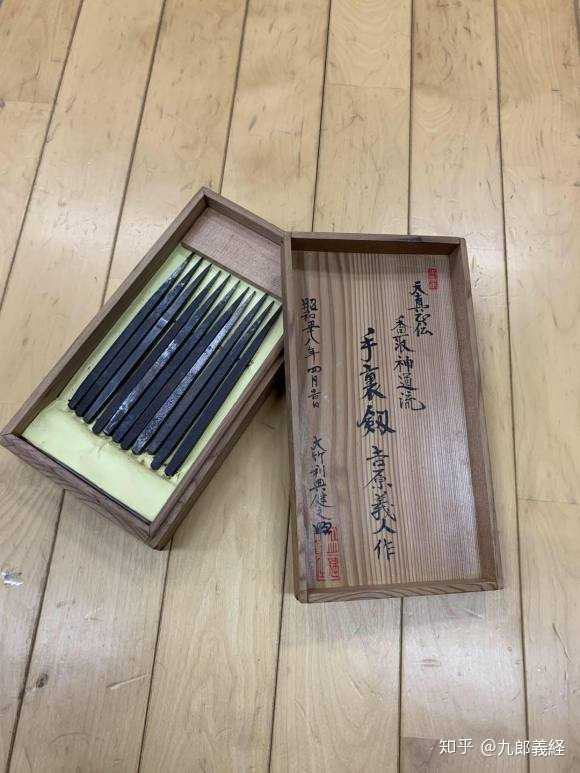 天真正伝
香取神道流
手裏釼 吉原義人作
昭和五十八年 四月吉日
大竹利典健之
知乎 @九郎義経